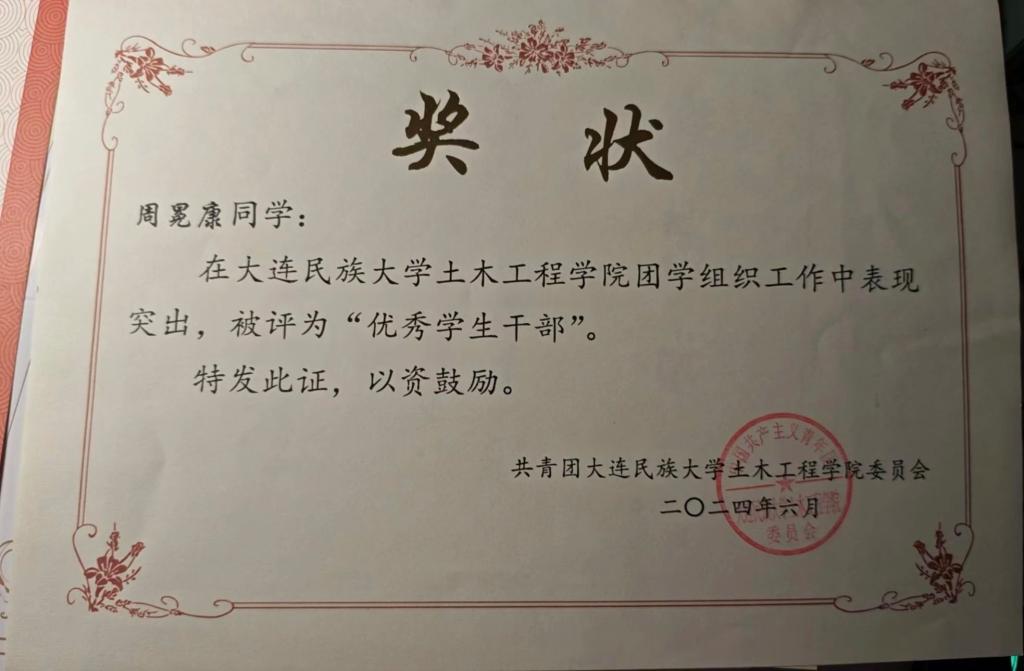 奖 状
周冕康同学：
在大连民族大学土木工程学院团学组织工作中表现
突出，被评为“优秀学生干部”。
特发此证，以资鼓励。
共青团大连民族大学土木工程学院委员会
二〇二四年六月
国共产主义青年
委员会